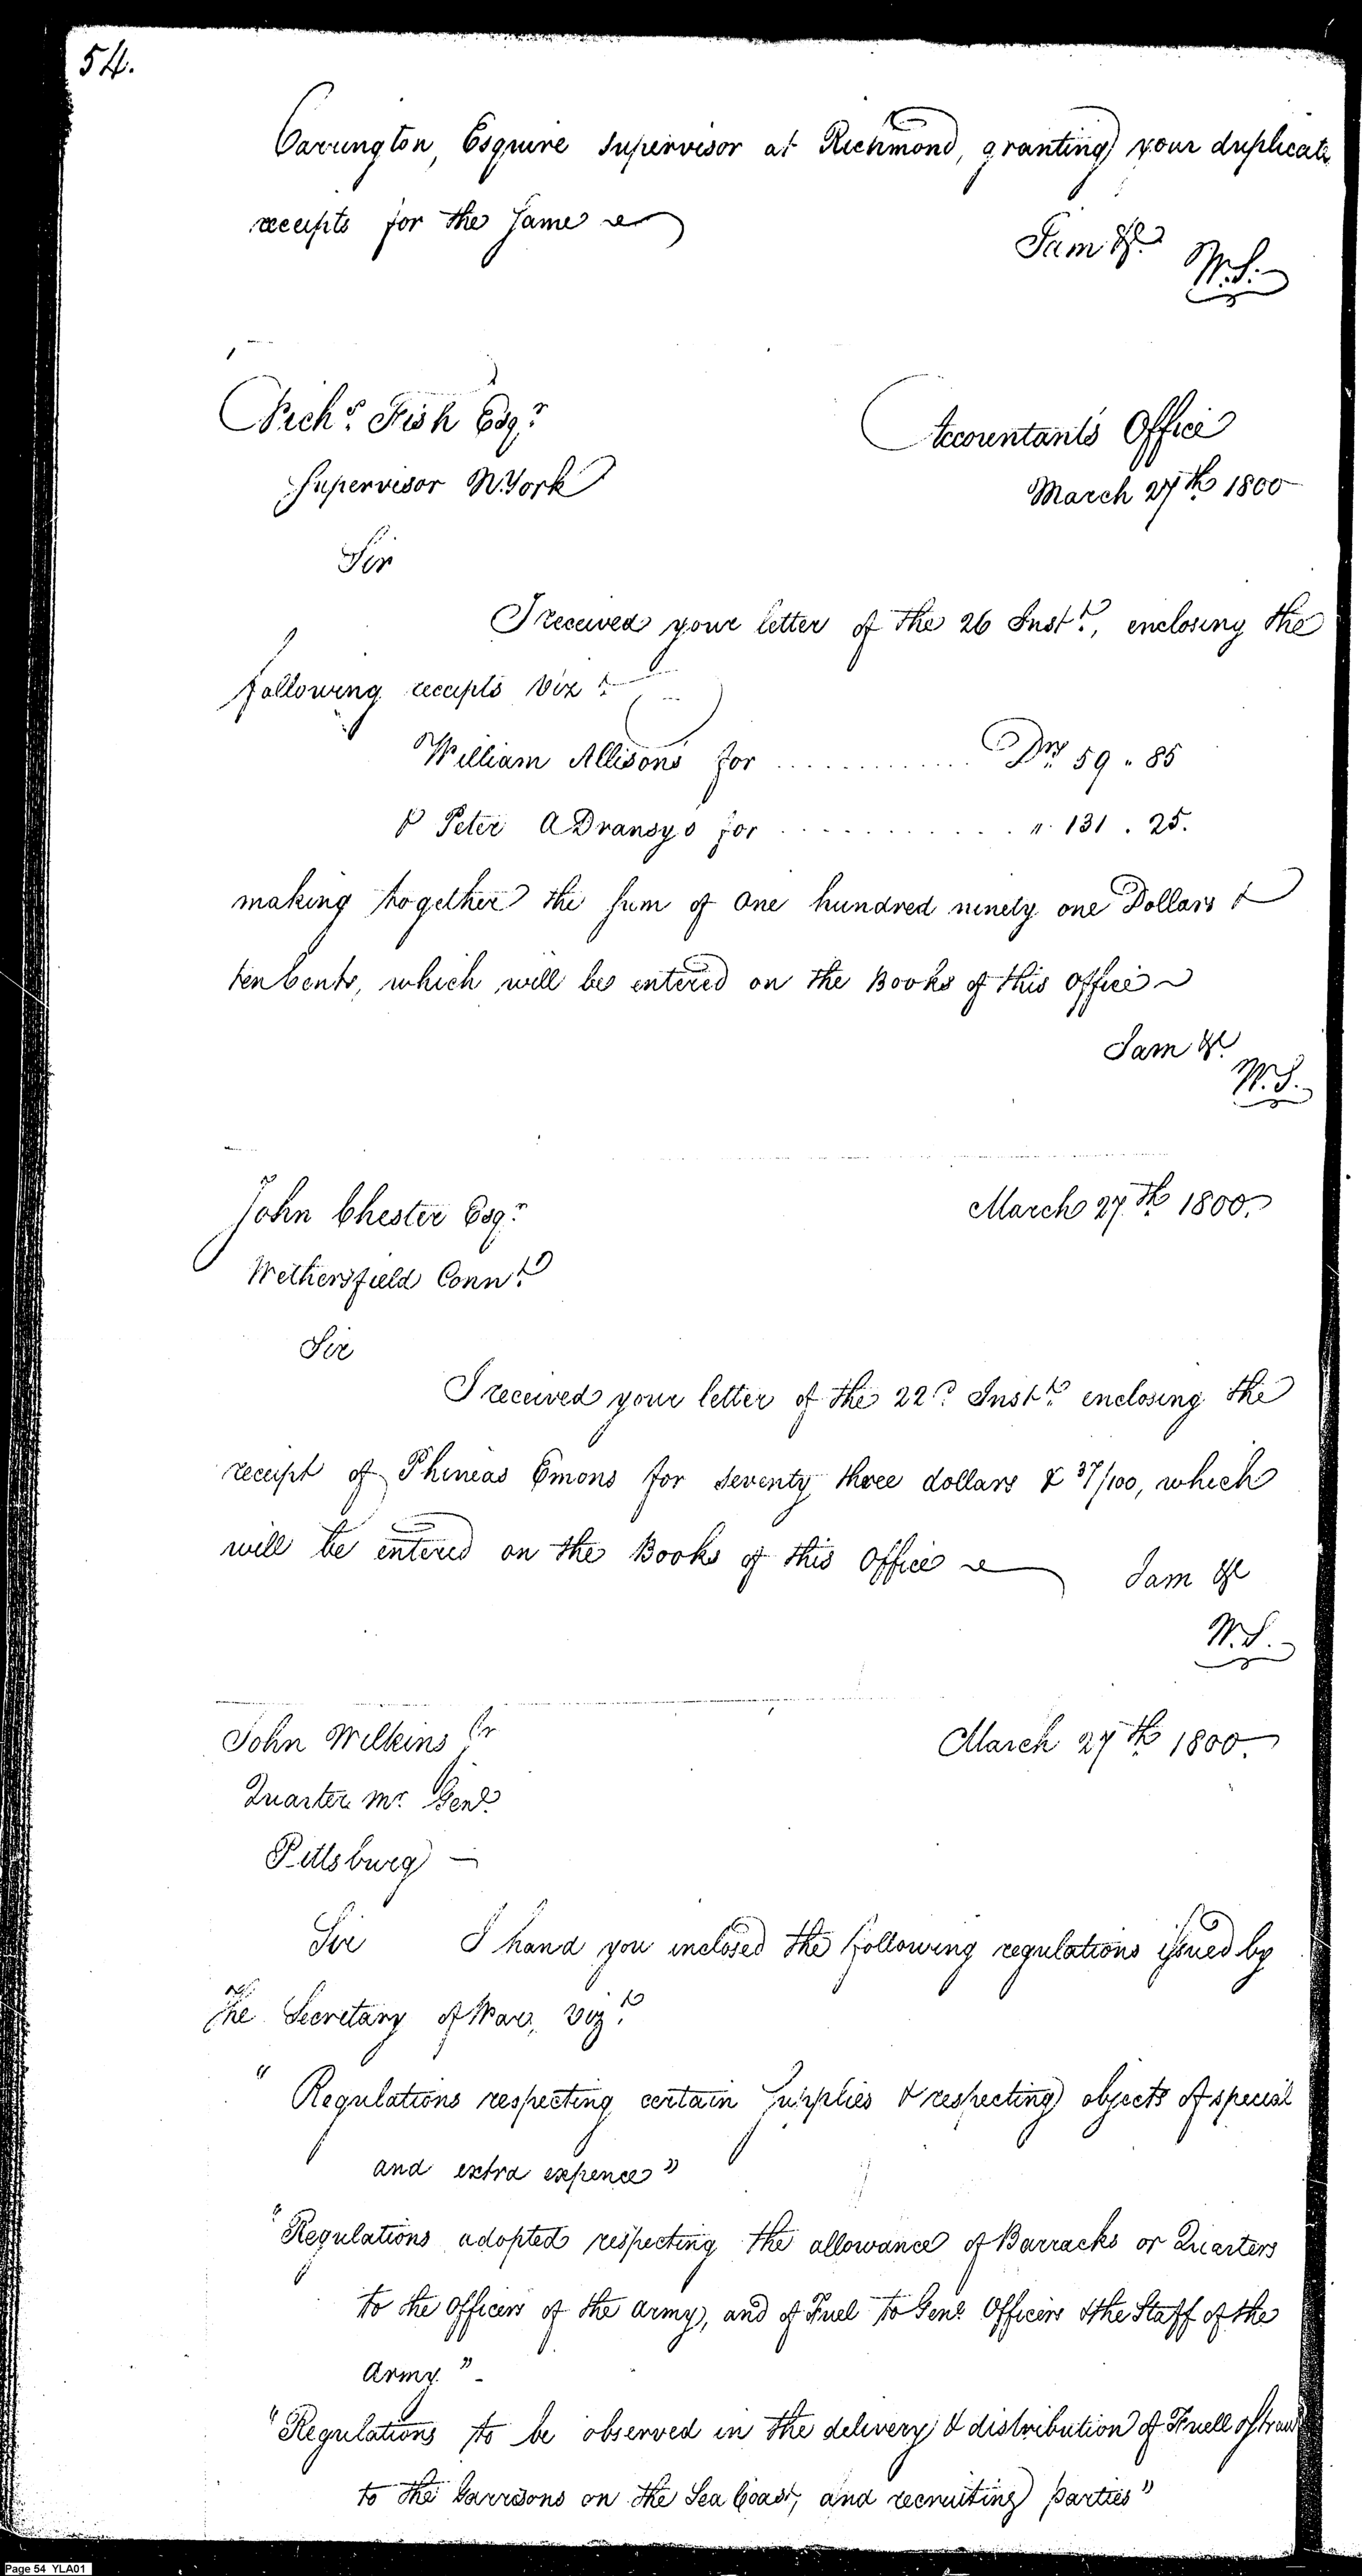 54.
Carrington, Esquire Supervisor at Richmond, granting your duplicate
receipts for the Same
I am &c.
W.S.
Nichs. Fish Esqr.
Supervisor N.York
Accountants Office
March 27th 1800
Sir
I received your letter of the 26 Instt., enclosing the
following receipts Vizt.
William Allisons for ............. Drs. 59 " 85
& Peter ADransys for ............ " 131 . 25.
making together the sum of one hundred ninety one Dollars &
ten Cents, which will be entered on the Books of this office
I am &c.
W.S.
John Chester Esqr.
March 27th 1800.
Wethersfield Connt.
Sir
I received your letter of the 22d. Instt. enclosing the
receipt of Phineas Emons for seventy three dollars & 37/100, which
will be entered on the Books of this Office
I am &c
W.S.
John Wilkins Jr
March 27th 1800.
Quarter Mr. Genl.
Pittsburg —
Sir I hand you inclosed the following regulations issued by
the Secretary of War, vizt.
" Regulations respecting certain Supplies & respecting objects of special
and extra expence"
"Regulations adopted respecting the allowance of Barracks or Quarters
to the officers of the army, and of Fuel to Genl. Officers & the Staff of the
Army." -
"Regulations to be observed in the delivery & distribution of Fuell of straw
to the Garrisons on the Sea Coast, and recruiting parties"
Page 54 YLA01